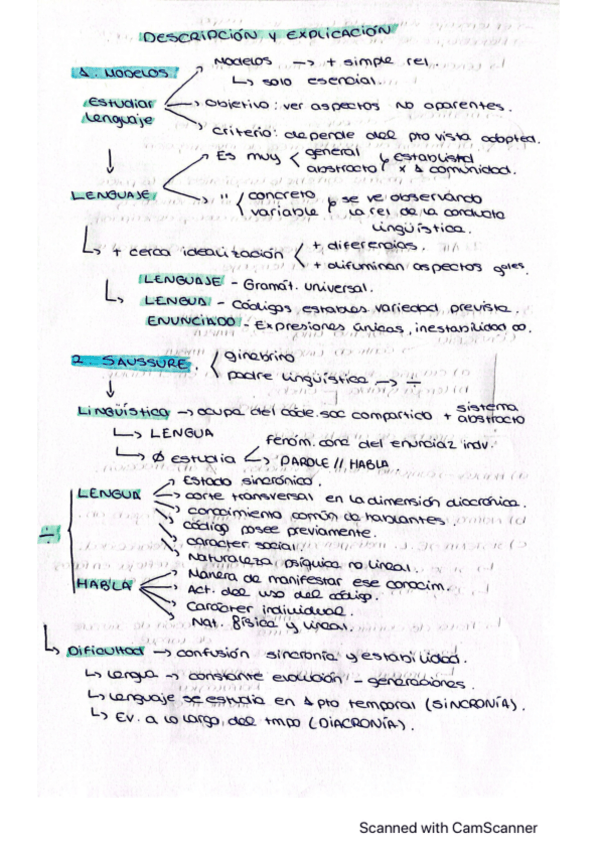 DESCRIPCIÓN Y EXPLICACIÓN
1. MODELOS.
Modelos → + simple rel.
↳ solo esencial.
Estudiar Lenguaje
Objetivo: ver aspectos no aparentes.
Criterio: depende del pto vista adoptad.
LENGUAJE
Es muy general abstracto establistd x 1 comunidad.
" concreto variable se ve observando
la rel. de la conducta
lingüística.
↳ + cerca idealización + diferencias.
+ difuminan aspectos gales.
LENGUAJE - Gramát. universal.
↳ LENGUA - Códigos estables variedad prevista.
ENUNCIADO - Expresiones únicas, inestabilidad ∞.
2. SAUSSURE.
ginebrino
padre lingüística → ÷
Lingüística → ocupa del códe. soc compartido + sistema abstracto
↳ LENGUA
↳ Ø estudia fenóm. conc del enunciaz indv.
↳ PAROLE // HABLA.
÷
LENGUA
Estado sincrónico.
corte transversal en la dimensión diacrónica.
conocimiento común de hablantes.
código posee previamente.
carácter social
Naturaleza psíquica no lineal.
HABLA
Manera de manifestar ese conocim.
Act. del uso del código.
Carácter individual.
Nat. física y lineal.
↳ Dificultad → confusión sincronía y estabilidad.
↳ Lengua → constante evolución - generaciones.
↳ Lenguaje se estudia en 1 pto temporal (SINCRONÍA).
↳ Ev. a lo largo del tmpo (DIACRONÍA).
Scanned with CamScanner